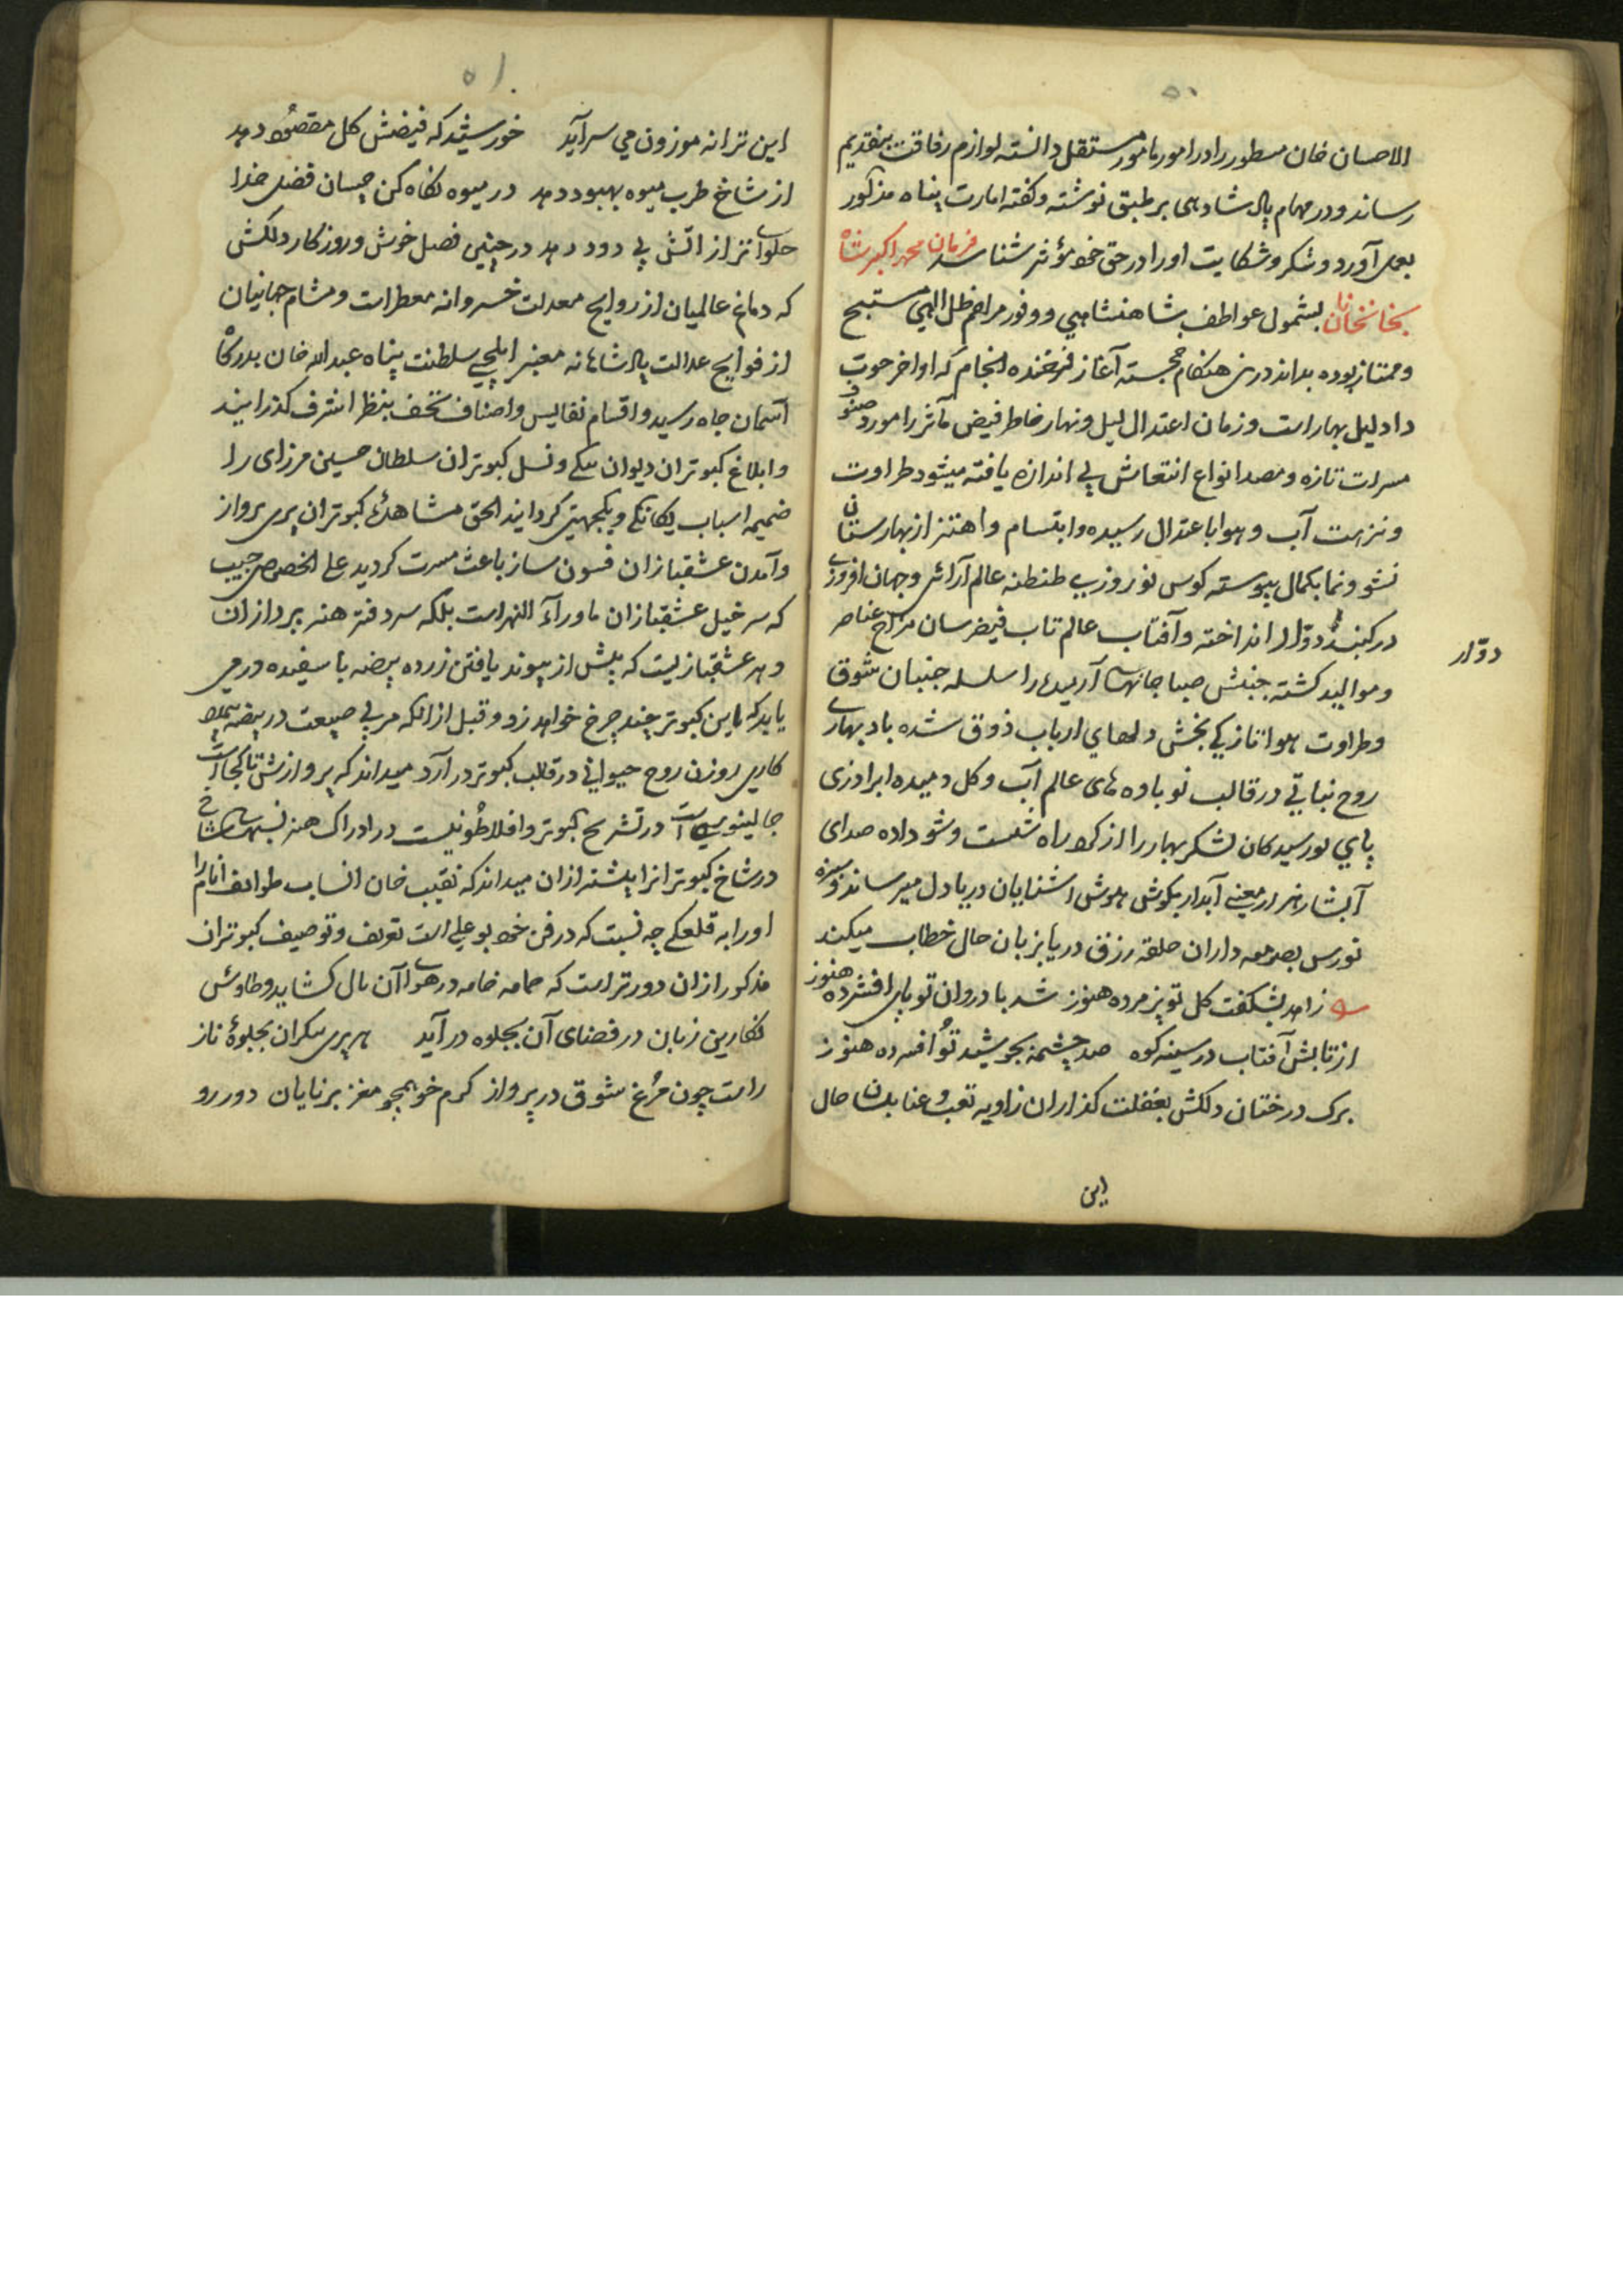 ۵۰
الاحسان خان مسطور را در امور مامور مستقل دانسته لوازم رفاقت بتقدیم
رساند و در مهام پادشاهی بر طبق نوشته و کفته امارت پناه مذکور
بعمل آورد و شکر و شکایت او را در حق خود مؤثر شناسد فرمان محمد اکبر شاه
بخانخانان بشمول عواطف شاهنشاهی و وفور مراحم ظل الهی مستبهج
و ممتاز بوده بداند درین هنکام خجسته آغاز فرخنده انجام که اواخر حوت
و دلیل بهار است و زمان اعتدال لیل و نهار خاطر فیض مآثر را مورد صنوف
مسرات تازه و مصدر انواع انتعاش بی اندازه یافته میشود طراوت
و نزهت آب و هوا باعتدال رسیده و ابتسام و اهتزاز بهارستان
نشو و نما بکمال پیوسته کوس نوروزی طنطنه عالم آرائی و جهان افروزی
در کنبد دوّار انداخته و آفتاب عالم تاب فیض رسان مزاج عناصر
دوّار
و موالید کشته جنبش صبا جانهای آرمیده را سلسله جنبان شوق
و طراوت هوا تازکی بخش دلهای ارباب ذوق شده باد بهاری
روح نباتی در قالب نوباوه های عالم آب و کل دمیده ابر آذری
پای نو رسیدکان لشکر بهار را از کرد راه شست و شو داده صدای
آبشار هزار معنی آبدار بکوش هوش آشنایان دریا دل میرساند و سبزه
نورس بصومعه داران حلقه رزق دریا بزبان حال خطاب میکند
زاهد بشکفت کل تو پژمرده هنوز شد باد روان تو پای افشرده هنوز
از تابش آفتاب در سینه کوه صد چشمه بجوشید تو افسرده هنوز
برک درختان دلکش بغفلت کذاران زاویه تعب و عنا بلسان حال
این
۵۱
این ترانه موزون می سرآید خورشید که فیضش کل مقصود دهد
از شاخ طرب میوه بهبود دهد در میوه نکاه کن چسان فضل خدا
حلوای تر از آتش بی دود دهد در چنین فصل خوش و روزکار دلکش
که دماغ عالمیان از روایح معدلت خسروانه معطر است و مشام جهانیان
از فوایح عدالت پادشاهانه معنبر ایلچی سلطنت پناه عبد الله خان بدرکاه
آسمان جاه رسید و اقسام نفایس و اصناف تحف بنظر اشرف کذرانید
و ابلاغ کبوتران دیوان بیکی و نسل کبوتران سلطان حسین مرزای را
ضمیمه اسباب یکانکی و یکجهتی کردانید الحق مشاهدهٔ کبوتران پری پرواز
و آمدن عشقبازان فسون ساز باعث مسرت کردید علی الخصوص حبیب
که سرخیل عشقبازان ماوراء النهر است بلکه سر دفتر هنر پردازان
دهر عشقبازیست که پیش از پیوند یافتن زرده بیضه با سفیده درمی
یابد که این کبوتر چند چرخ خواهد زد و قبل از انکه مربی طبیعت در بیضه
کاری روزن روح حیوانی در قالب کبوتر در آرد میداند که پروازش تا کجاست
جالینوسی است در تشریح کبوتر و افلاطونیست در ادراک هنر نسبهای شاخ
در شاخ کبوترانرا بیشتر ازان میداند که نقیب خان انساب طوایف انام را
او را به قلعکی چه نسبت که در فن خود بو علی است تعریف و توصیف کبوتران
مذکور ازان دورتر است که حمامه خامه در هوای آن بال کشاید و طاوس
نکارین زبان در فضای آن بجلوه در آید هر پری پیکران بجلوهٔ ناز
راست چون مرغ شوق در پرواز کرم خو همچو مغز برنایان دور رو